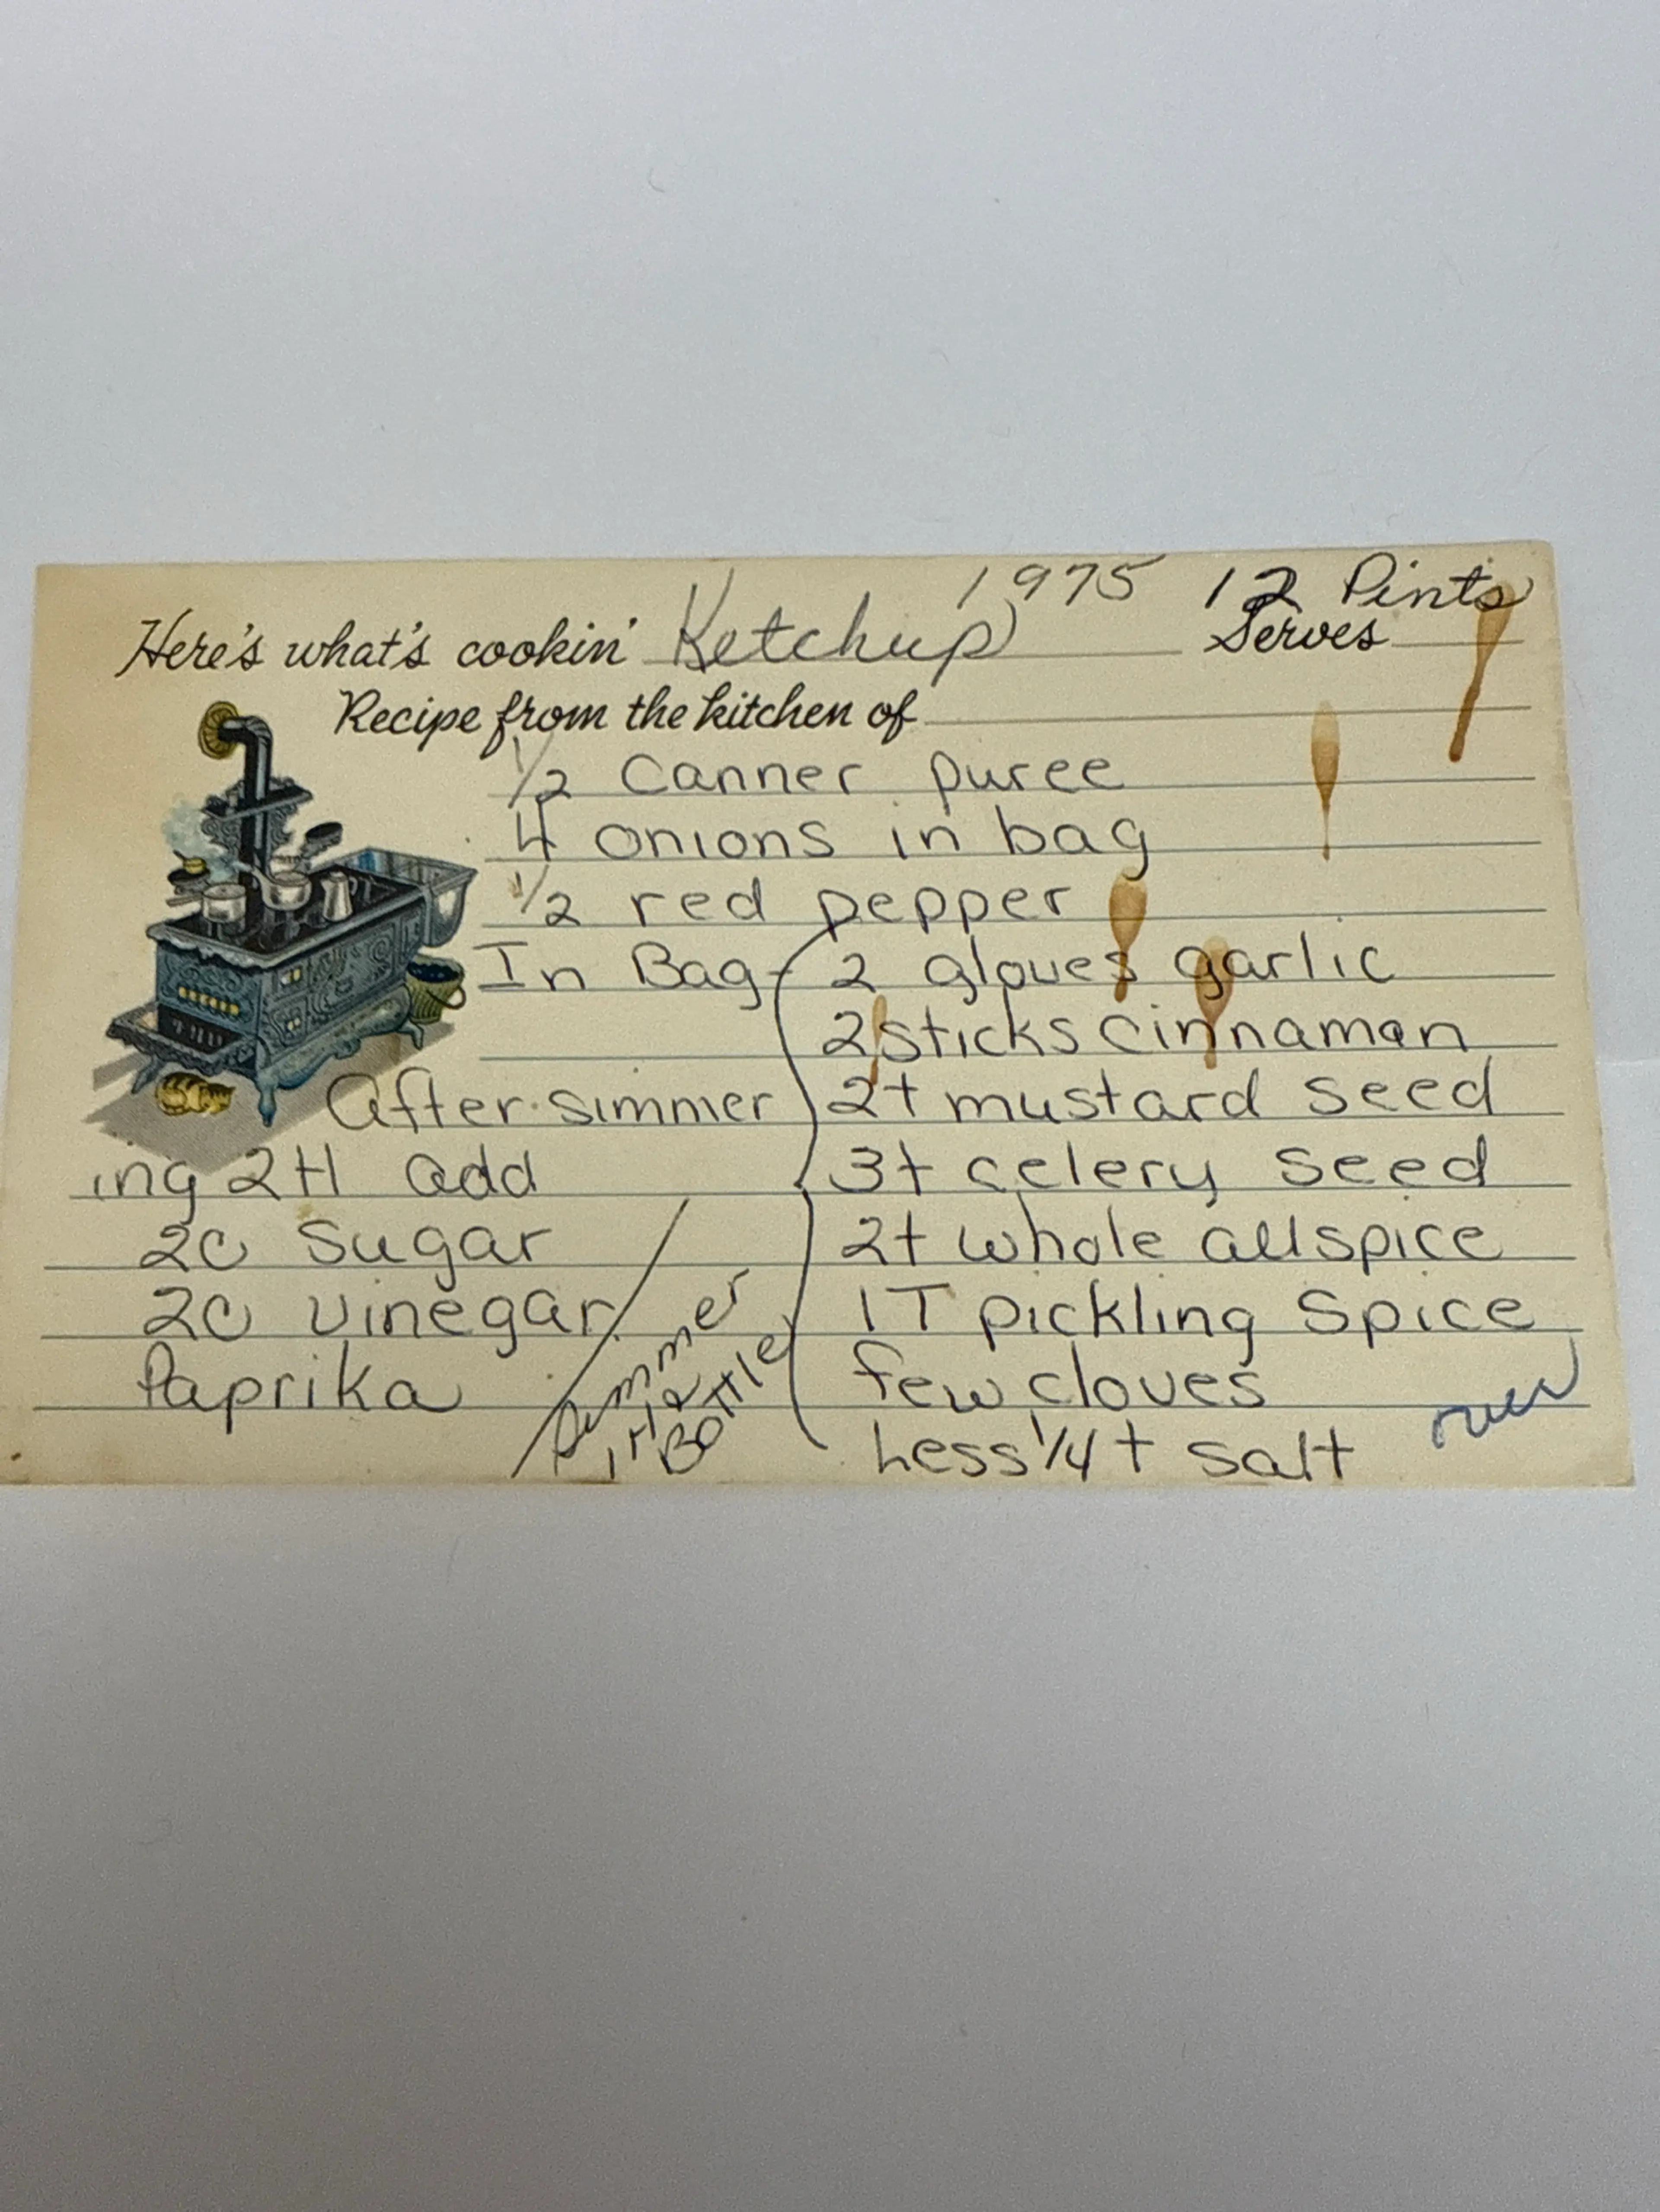 1975 12 Pints
Here's what's cookin' Ketchup Serves
Recipe from the kitchen of
1/2 Canner puree
4 onions in bag
1/2 red pepper
In Bag - 2 gloves garlic
2 sticks cinnamon
2t mustard seed
3t celery seed
2t whole allspice
1T pickling spice
few cloves
Less 1/4 t salt
over
After simmer
ing 2H add
2c sugar
2c vinegar
Paprika
Simmer
1 H &
Bottle